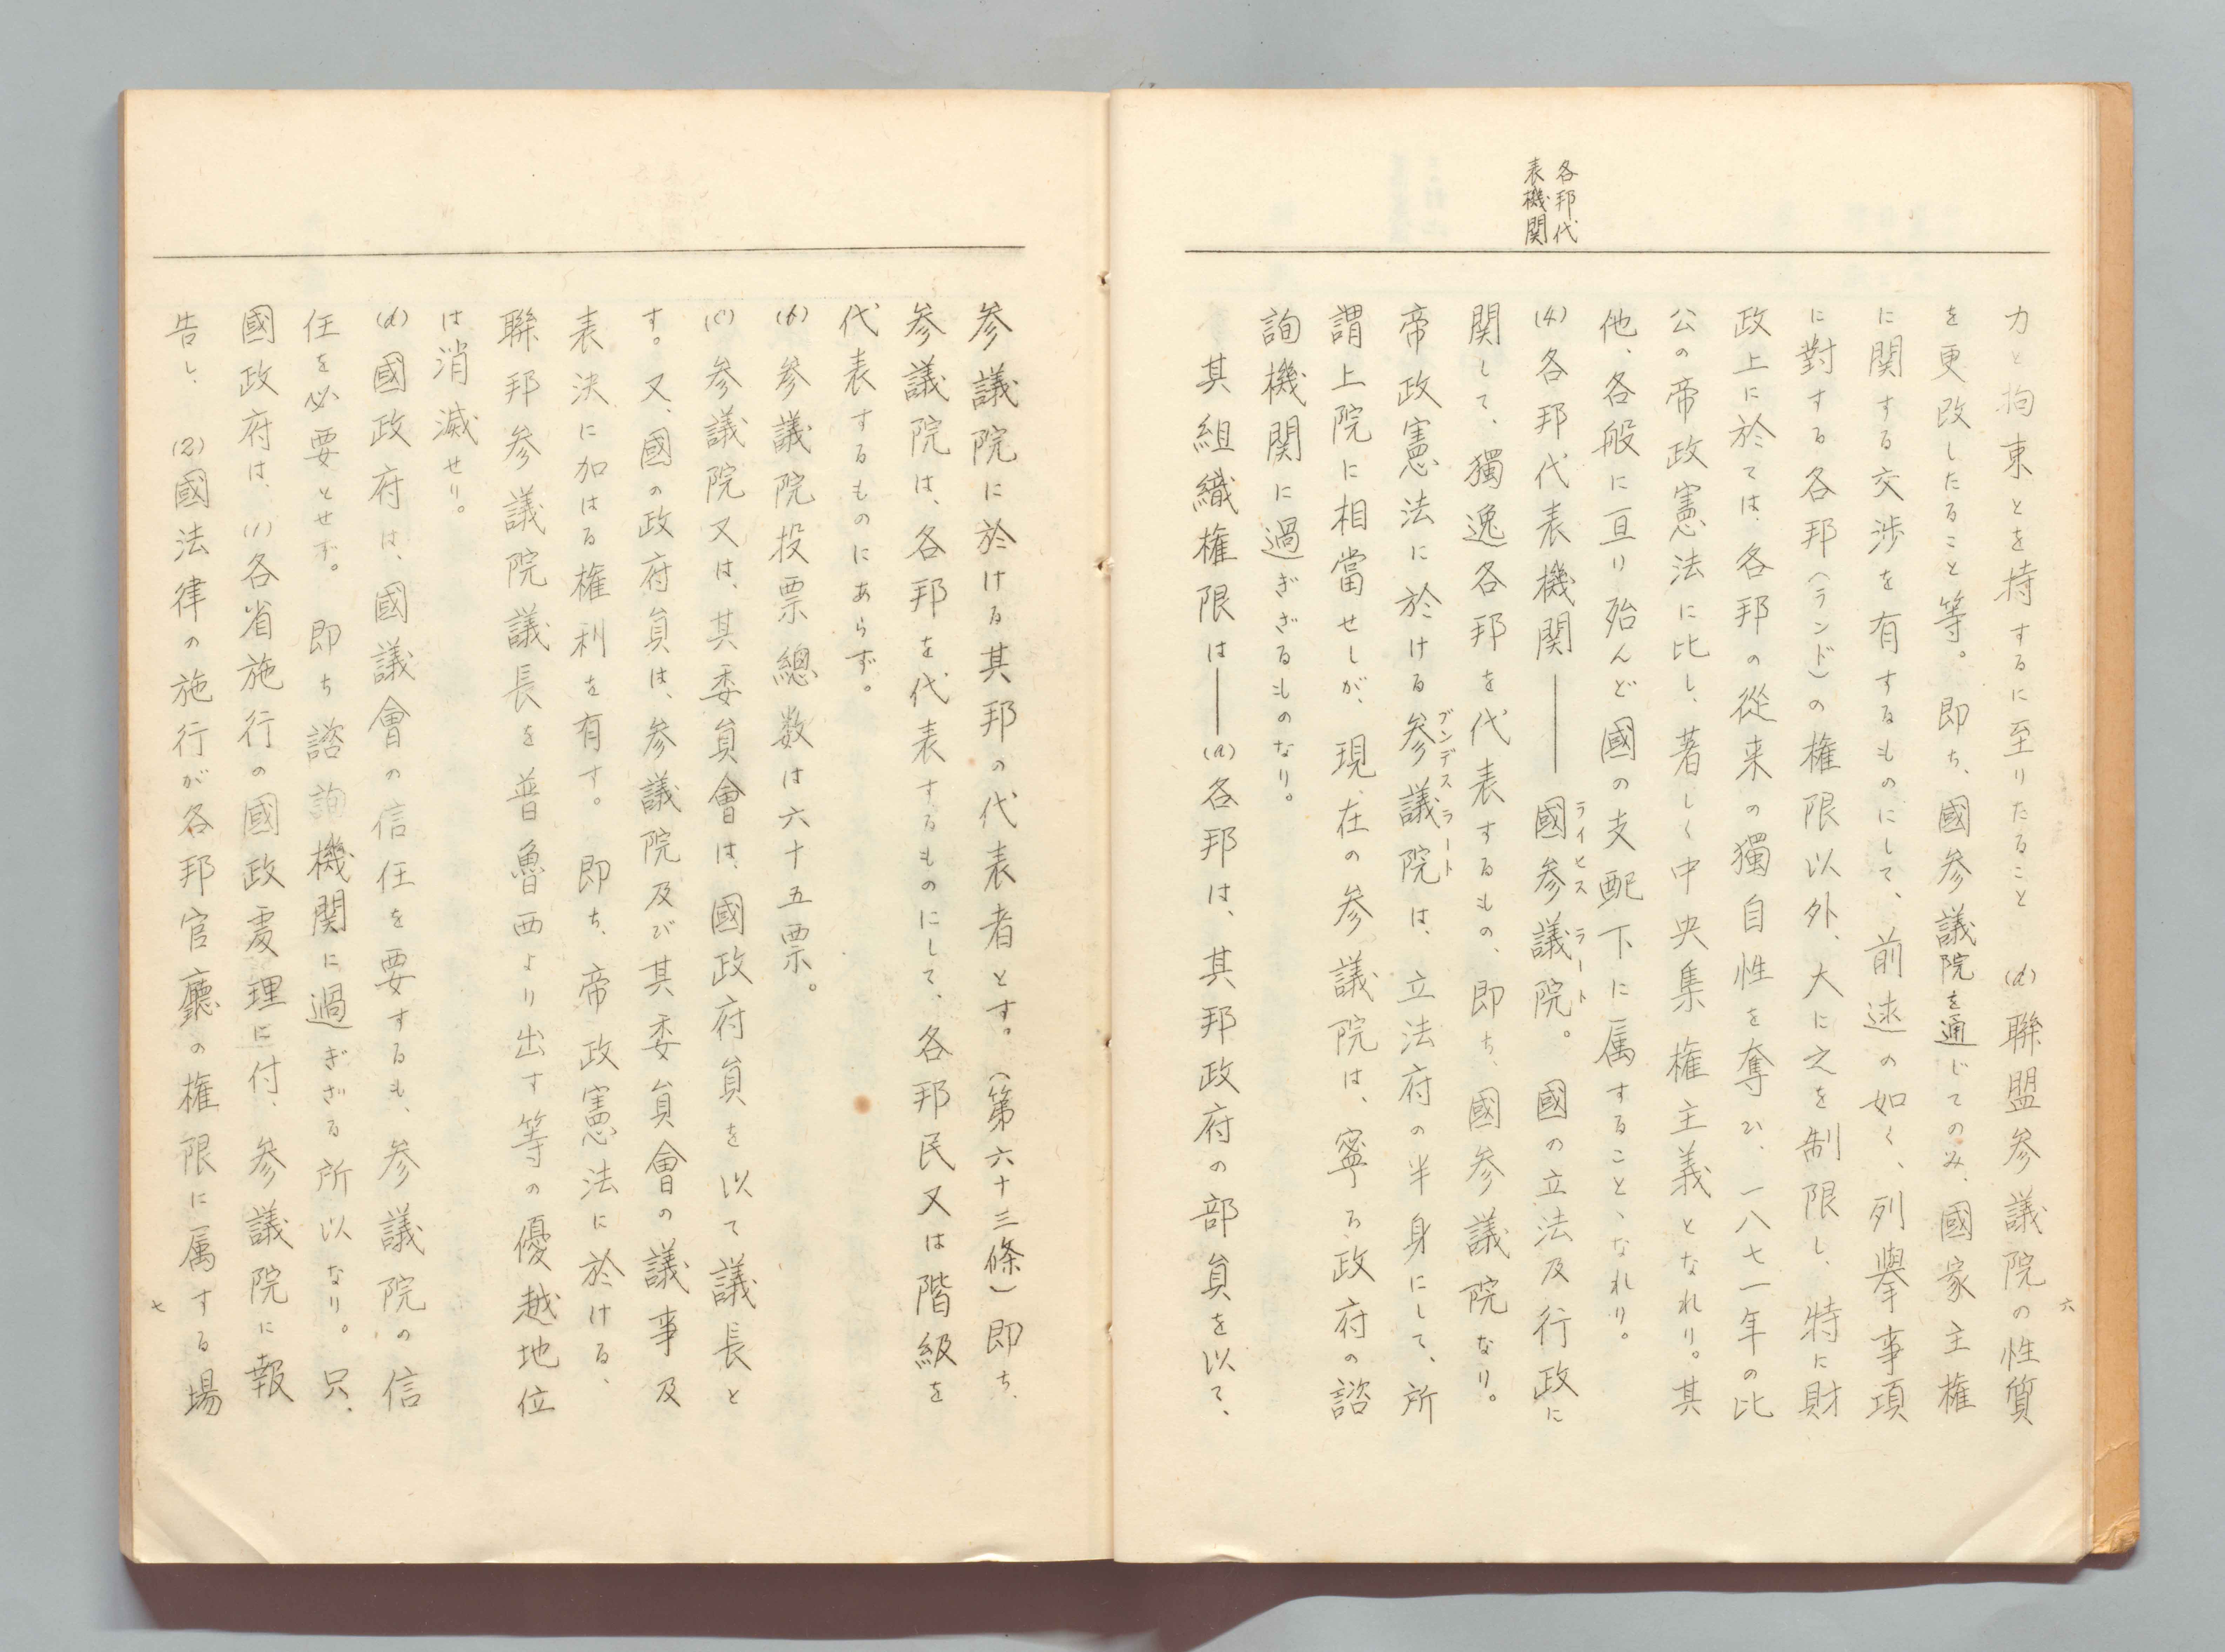 各邦代
表機関
六
力と拘束とを持するに至りたること (d)聯盟参議院の性質
を更改したること等。即ち、國参議院を通じてのみ、國家主権
に関する交渉を有するものにして、前述の如く、列擧事項
に對する各邦(ランド)の権限以外、大に之を制限し、特に財
政上に於ては、各邦の從来の獨自性を奪ひ、一八七一年の比
公の帝政憲法に比し、著しく中央集権主義となれり。其
他、各般に亘り殆んど國の支配下に属すること、なれり。
(4)各邦代表機関――國参議院。國の立法及行政に
ライヒスラート
関して、獨逸各邦を代表するもの、即ち、國参議院なり。
帝政憲法に於ける参議院は、立法府の半身にして、所
ブンデスラート
謂上院に相當せしが、現在の参議院は、寧ろ政府の諮
詢機関に過ぎざるものなり。
其組織権限は――(a)各邦は、其邦政府の部員を以て、
参議院に於ける其邦の代表者とす。(第六十三條)即ち、
参議院は、各邦を代表するものにして、各邦民又は階級を
代表するものにあらず。
(b)参議院投票總数は六十五票。
(c)参議院又は、其委員會は、國政府員を以て議長と
す。又、國の政府員は、参議院及び其委員會の議事及
表決に加はる権利を有す。即ち、帝政憲法に於ける、
聯邦参議院議長を普魯西より出す等の優越地位
は消滅せり。
(d)國政府は、國議會の信任を要するも、参議院の信
任を必要とせず。即ち諮詢機関に過ぎざる所以なり。只、
國政府は、(1)各省施行の國政處理に付、参議院に報
告し、(2)國法律の施行が各邦官廳の権限に属する場
七